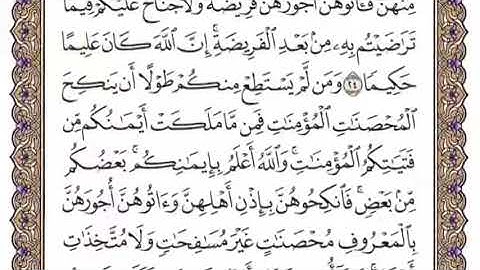 مِنۡهُنَّ فَـَٔاتُوهُنَّ أُجُورَهُنَّ فَرِيضَةٗۚ وَلَا جُنَاحَ عَلَيۡكُمۡ فِيمَا
تَرَٰضَيۡتُم بِهِۦ مِنۢ بَعۡدِ ٱلۡفَرِيضَةِۚ إِنَّ ٱللَّهَ كَانَ عَلِيمًا
حَكِيمٗا ٢٤ وَمَن لَّمۡ يَسۡتَطِعۡ مِنكُمۡ طَوۡلًا أَن يَنكِحَ
ٱلۡمُحۡصَنَٰتِ ٱلۡمُؤۡمِنَٰتِ فَمِن مَّا مَلَكَتۡ أَيۡمَٰنُكُم مِّن
فَتَيَٰتِكُمُ ٱلۡمُؤۡمِنَٰتِۚ وَٱللَّهُ أَعۡلَمُ بِإِيمَٰنِكُمۚ بَعۡضُكُم
مِّنۢ بَعۡضٖۚ فَٱنكِحُوهُنَّ بِإِذۡنِ أَهۡلِهِنَّ وَءَاتُوهُنَّ أُجُورَهُنَّ
بِٱلۡمَعۡرُوفِ مُحۡصَنَٰتٍ غَيۡرَ مُسَٰفِحَٰتٖ وَلَا مُتَّخِذَٰتِ